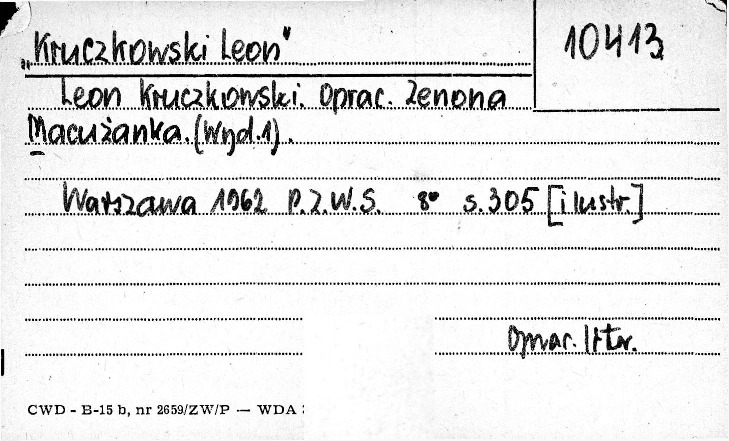 „Kruczkowski Leon"
10413
Leon Kruczkowski. Oprac. Zenona
Macużanka. (Wyd.1).
Warszawa 1962 P.Z.W.S. 8° s.305 [ilustr.]
Oprac. liter.
CWD - B-15 b, nr 2659/ZW/P — WDA